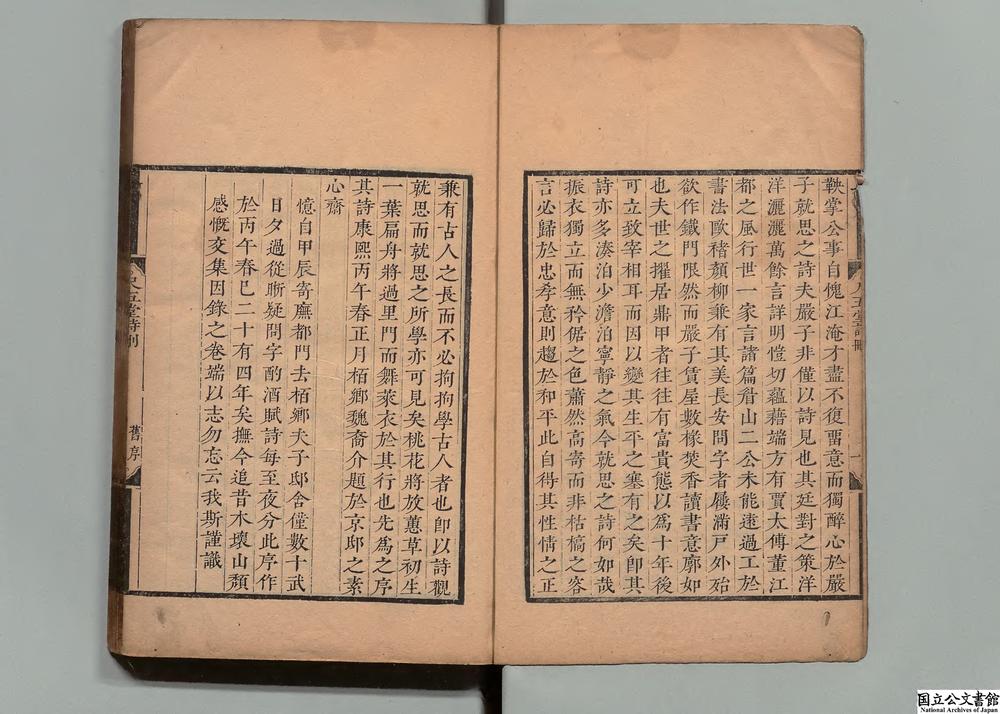 鞅掌公事自愧江淹才盡不復畱意而獨醉心於嚴
子就思之詩夫嚴子非僅以詩見也其廷對之策洋
洋灑灑萬餘言詳明愷切蘊藉端方有賈太傅董江
都之風行世一家言諸篇眉山二公未能遠過工於
書法歐禇顏柳兼有其美長安問字者屨滿戸外始
欲作鐵門限然而嚴子賃屋數椽焚香讀書意廓如
也夫世之擢居鼎甲者往往有富貴態以爲十年後
可立致宰相耳而因以變其生平之塞有之矣卽其
詩亦多湊泊少澹泊寧靜之氣今就思之詩何如哉
振衣獨立而無矜倨之色蕭然高寄而非枯槁之容
言必歸於忠孝意則趨於和平此自得其性情之正
尺五堂詩刪
一
兼有古人之長而不必拘拘學古人者也卽以詩觀
就思而就思之所學亦可見矣桃花將放蕙草初生
一葉扁舟將過里門而舞萊衣於其行也先爲之序
其詩康熙丙午春正月栢鄉魏裔介題於京邸之素
心齋
憶自甲辰寄廡都門去栢鄉夫子邸舍僅數十武
日夕過從晰疑問字酌酒賦詩每至夜分此序作
於丙午春巳二十有四年矣撫今追昔木壞山頽
感慨交集因錄之卷端以志勿忘云我斯謹識
尺五堂詩刪
舊序
国立公文書館
National Archives of Japan